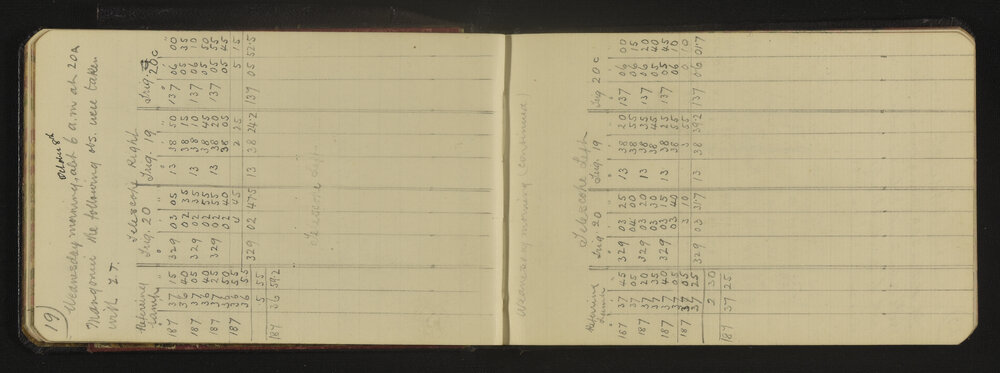 19
October 8th
Wednesday morning, abt 6 a.m at 20a
Mangonui the following obs. were taken
with Z.T.
Telescope Right
Referring Lamp Trig. 20 Trig. 19 Trig. 20c
187 37 15 329 03 05 13 38 50 137 06 00
36 40 02 35 38 15 05 35
187 37 05 329 02 35 13 38 10 137 06 10
36 40 02 55 38 45 05 50
187 37 25 329 02 55 13 38 20 137 05 55
36 50 02 40 38 05 05 45
187 36 55 4 45 2 25 5 15
36 55 329 02 47.5 13 38 24.2 137 05 52.5
5 55
187 36 59.2
Telescope Left
Wednesday morning (continued)
Telescope Left
Referring Lamp Trig 20 Trig. 19 Trig 20c
187 37 45 329 03 25 13 38 20 137 06 00
37 05 04 00 38 55 06 15
187 37 20 329 03 20 13 38 35 137 06 20
37 35 03 30 38 45 05 40
187 37 40 329 03 15 13 38 25 137 05 45
37 05 03 40 38 55 06 10
187 37 05 3 10 3 55 0 10
37 25 329 03 31.7 13 38 39.2 137 06 01.7
2 30
187 37 25